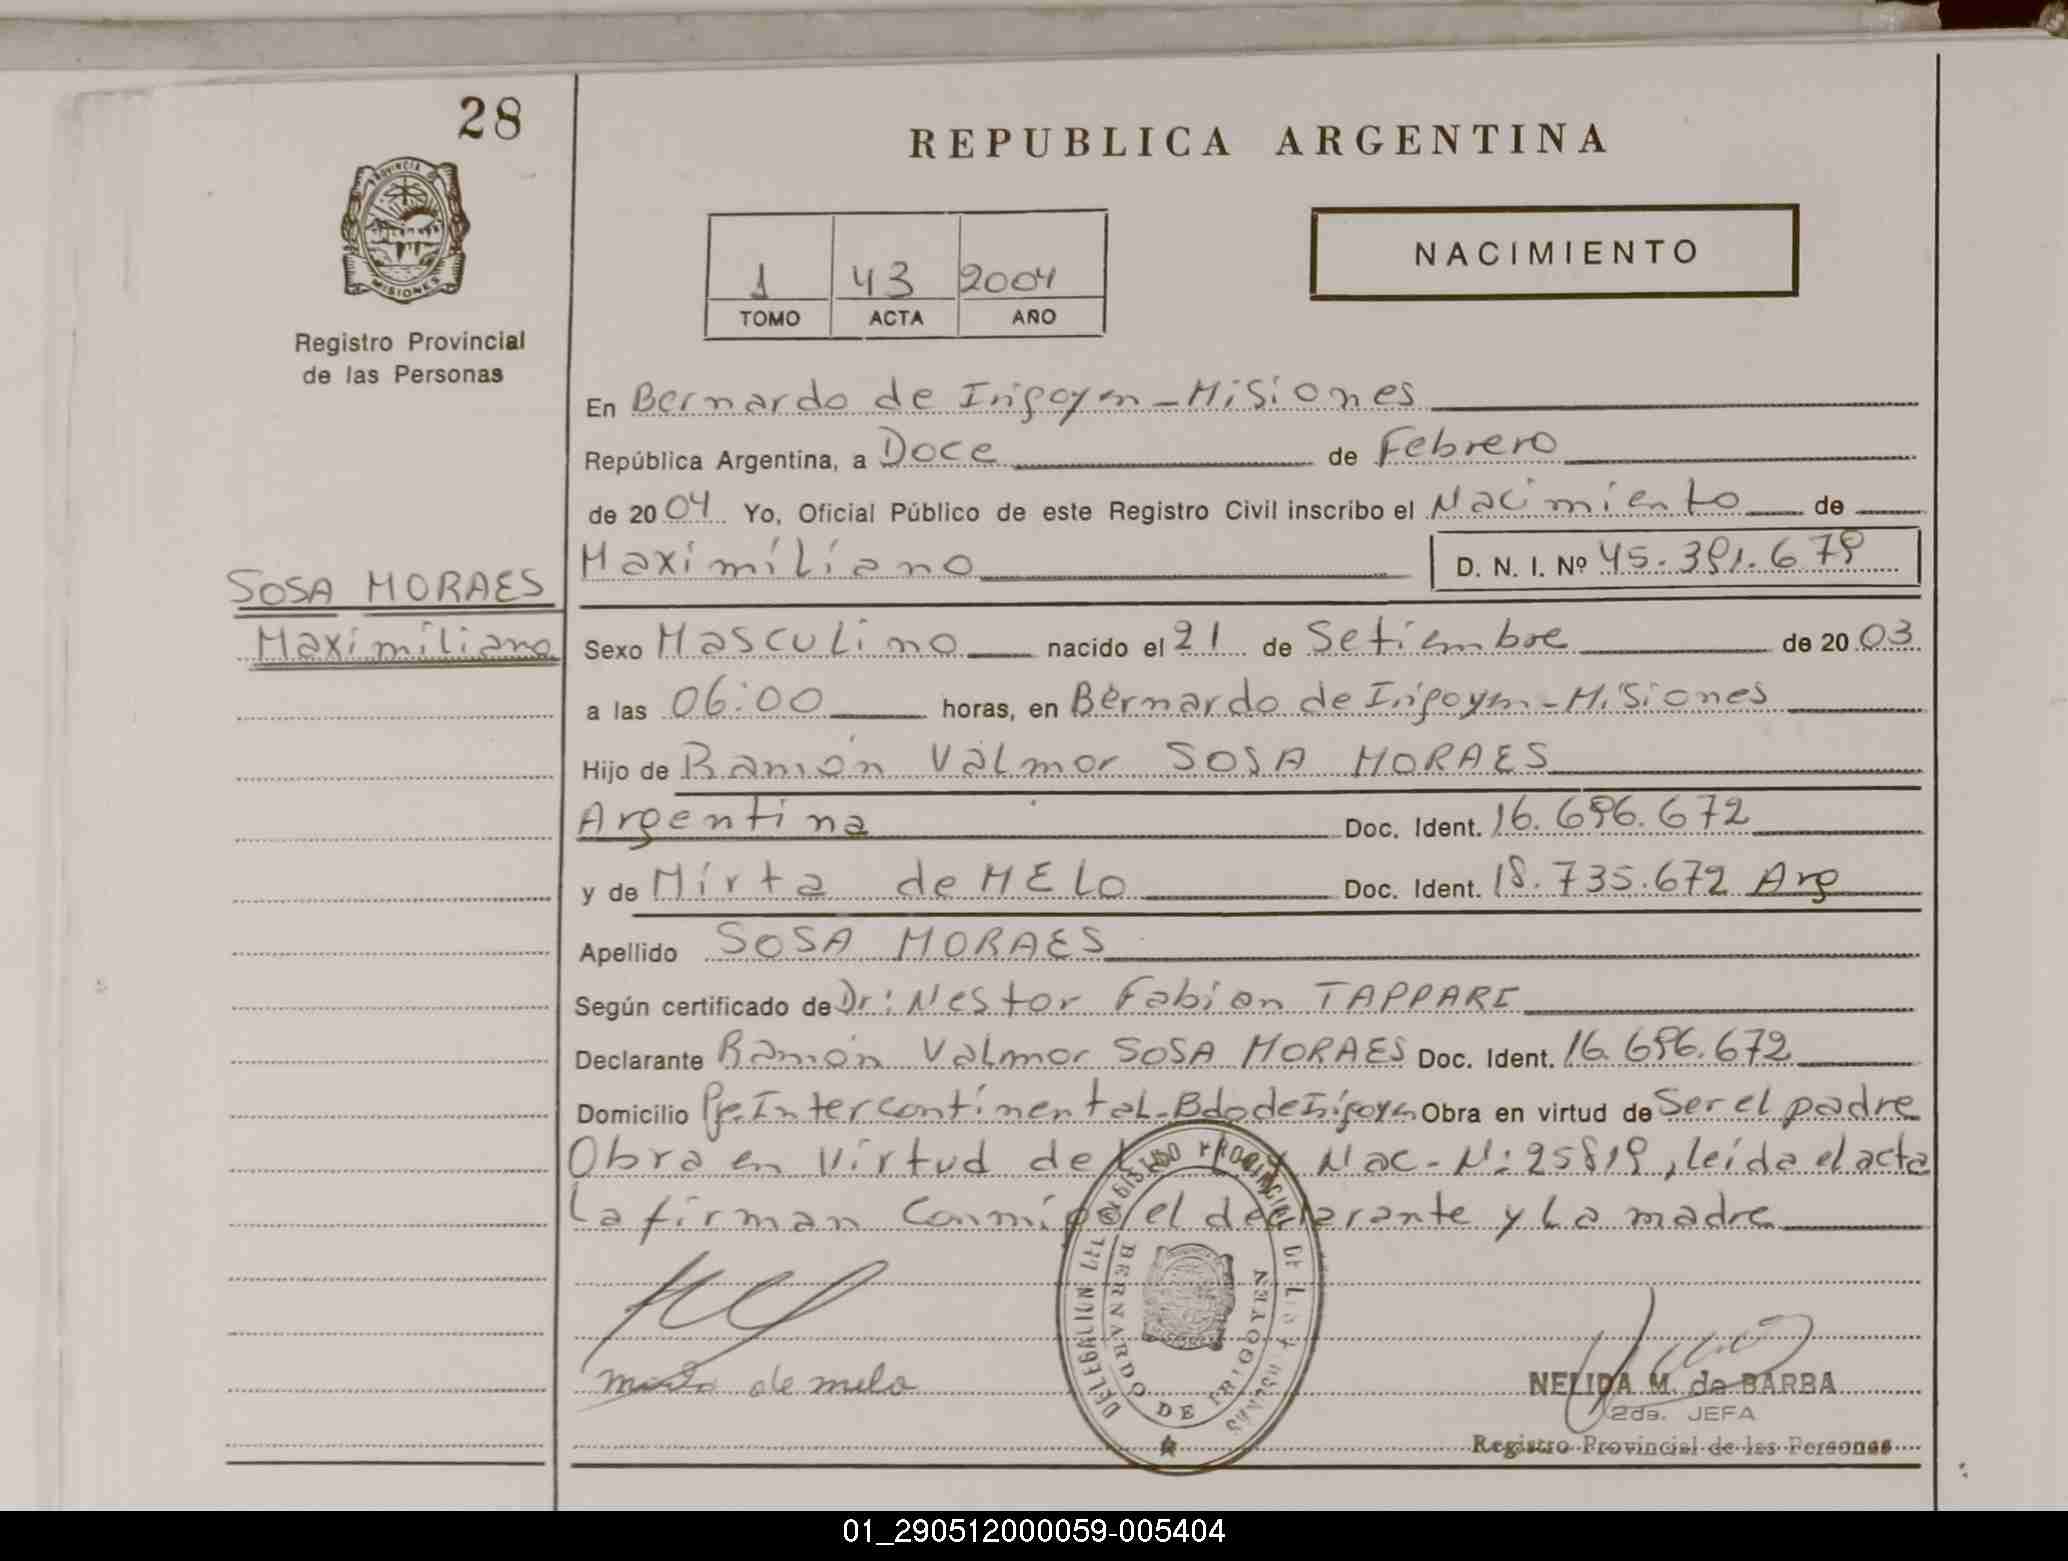 28
REPUBLICA ARGENTINA
PROVINCIA DE
MISIONES
Registro Provincial
de las Personas
1 43 2004
TOMO ACTA AÑO
NACIMIENTO
En Bernardo de Irigoyen - Misiones
República Argentina, a Doce de Febrero
de 2004 Yo, Oficial Público de este Registro Civil inscribo el Nacimiento de
Maximiliano D. N. I. Nº
SOSA MORAES
Maximiliano
Sexo Masculino nacido el 21 de Setiembre de 2003
a las 06:00 horas, en Bernardo de Irigoyen - Misiones
Hijo de Ramón Valmor SOSA MORAES
Argentina Doc. Ident. 16.696.672
y de Mirta de MELO Doc. Ident. 18.735.672 Arg
Apellido SOSA MORAES
Según certificado de Dr: Nestor Fabian TAPPARI
Declarante Ramón Valmor SOSA MORAES Doc. Ident. 16.696.672
Domicilio Pje. Intercontinental - Bdo de Irigoyen Obra en virtud de Ser el padre
Obra en Virtud de Ley Nac - Nº 25819, leída el acta
la firman Conmigo el declarante y La madre
DELEGACION REGISTRO PROVINCIAL DE LAS PERSONAS
BERNARDO DE IRIGOYEN
Mirta de melo
NELIDA M. de BARBA
2da. JEFA
Registro Provincial de las Personas
01_290512000059-005404